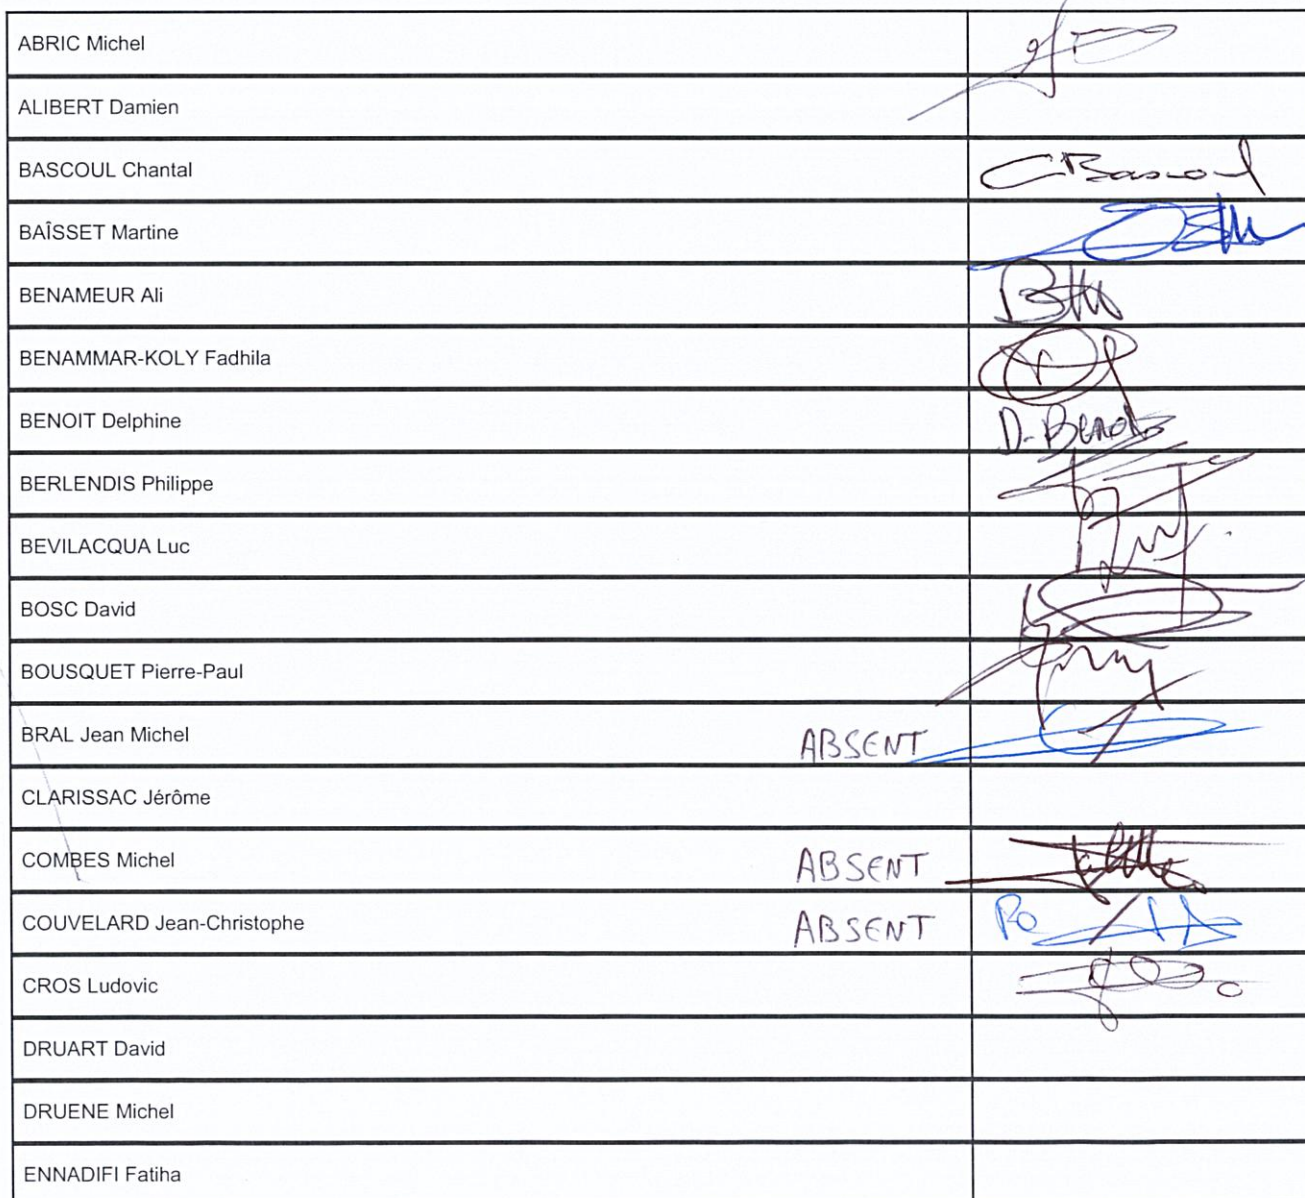 ABRIC Michel
ALIBERT Damien
BASCOUL Chantal CBascoul
BAÎSSET Martine
BENAMEUR Ali
BENAMMAR-KOLY Fadhila
BENOIT Delphine D-Benoit
BERLENDIS Philippe
BEVILACQUA Luc
BOSC David
BOUSQUET Pierre-Paul
BRAL Jean Michel ABSENT
CLARISSAC Jérôme
COMBES Michel ABSENT
COUVELARD Jean-Christophe ABSENT
CROS Ludovic
DRUART David
DRUENE Michel
ENNADIFI Fatiha